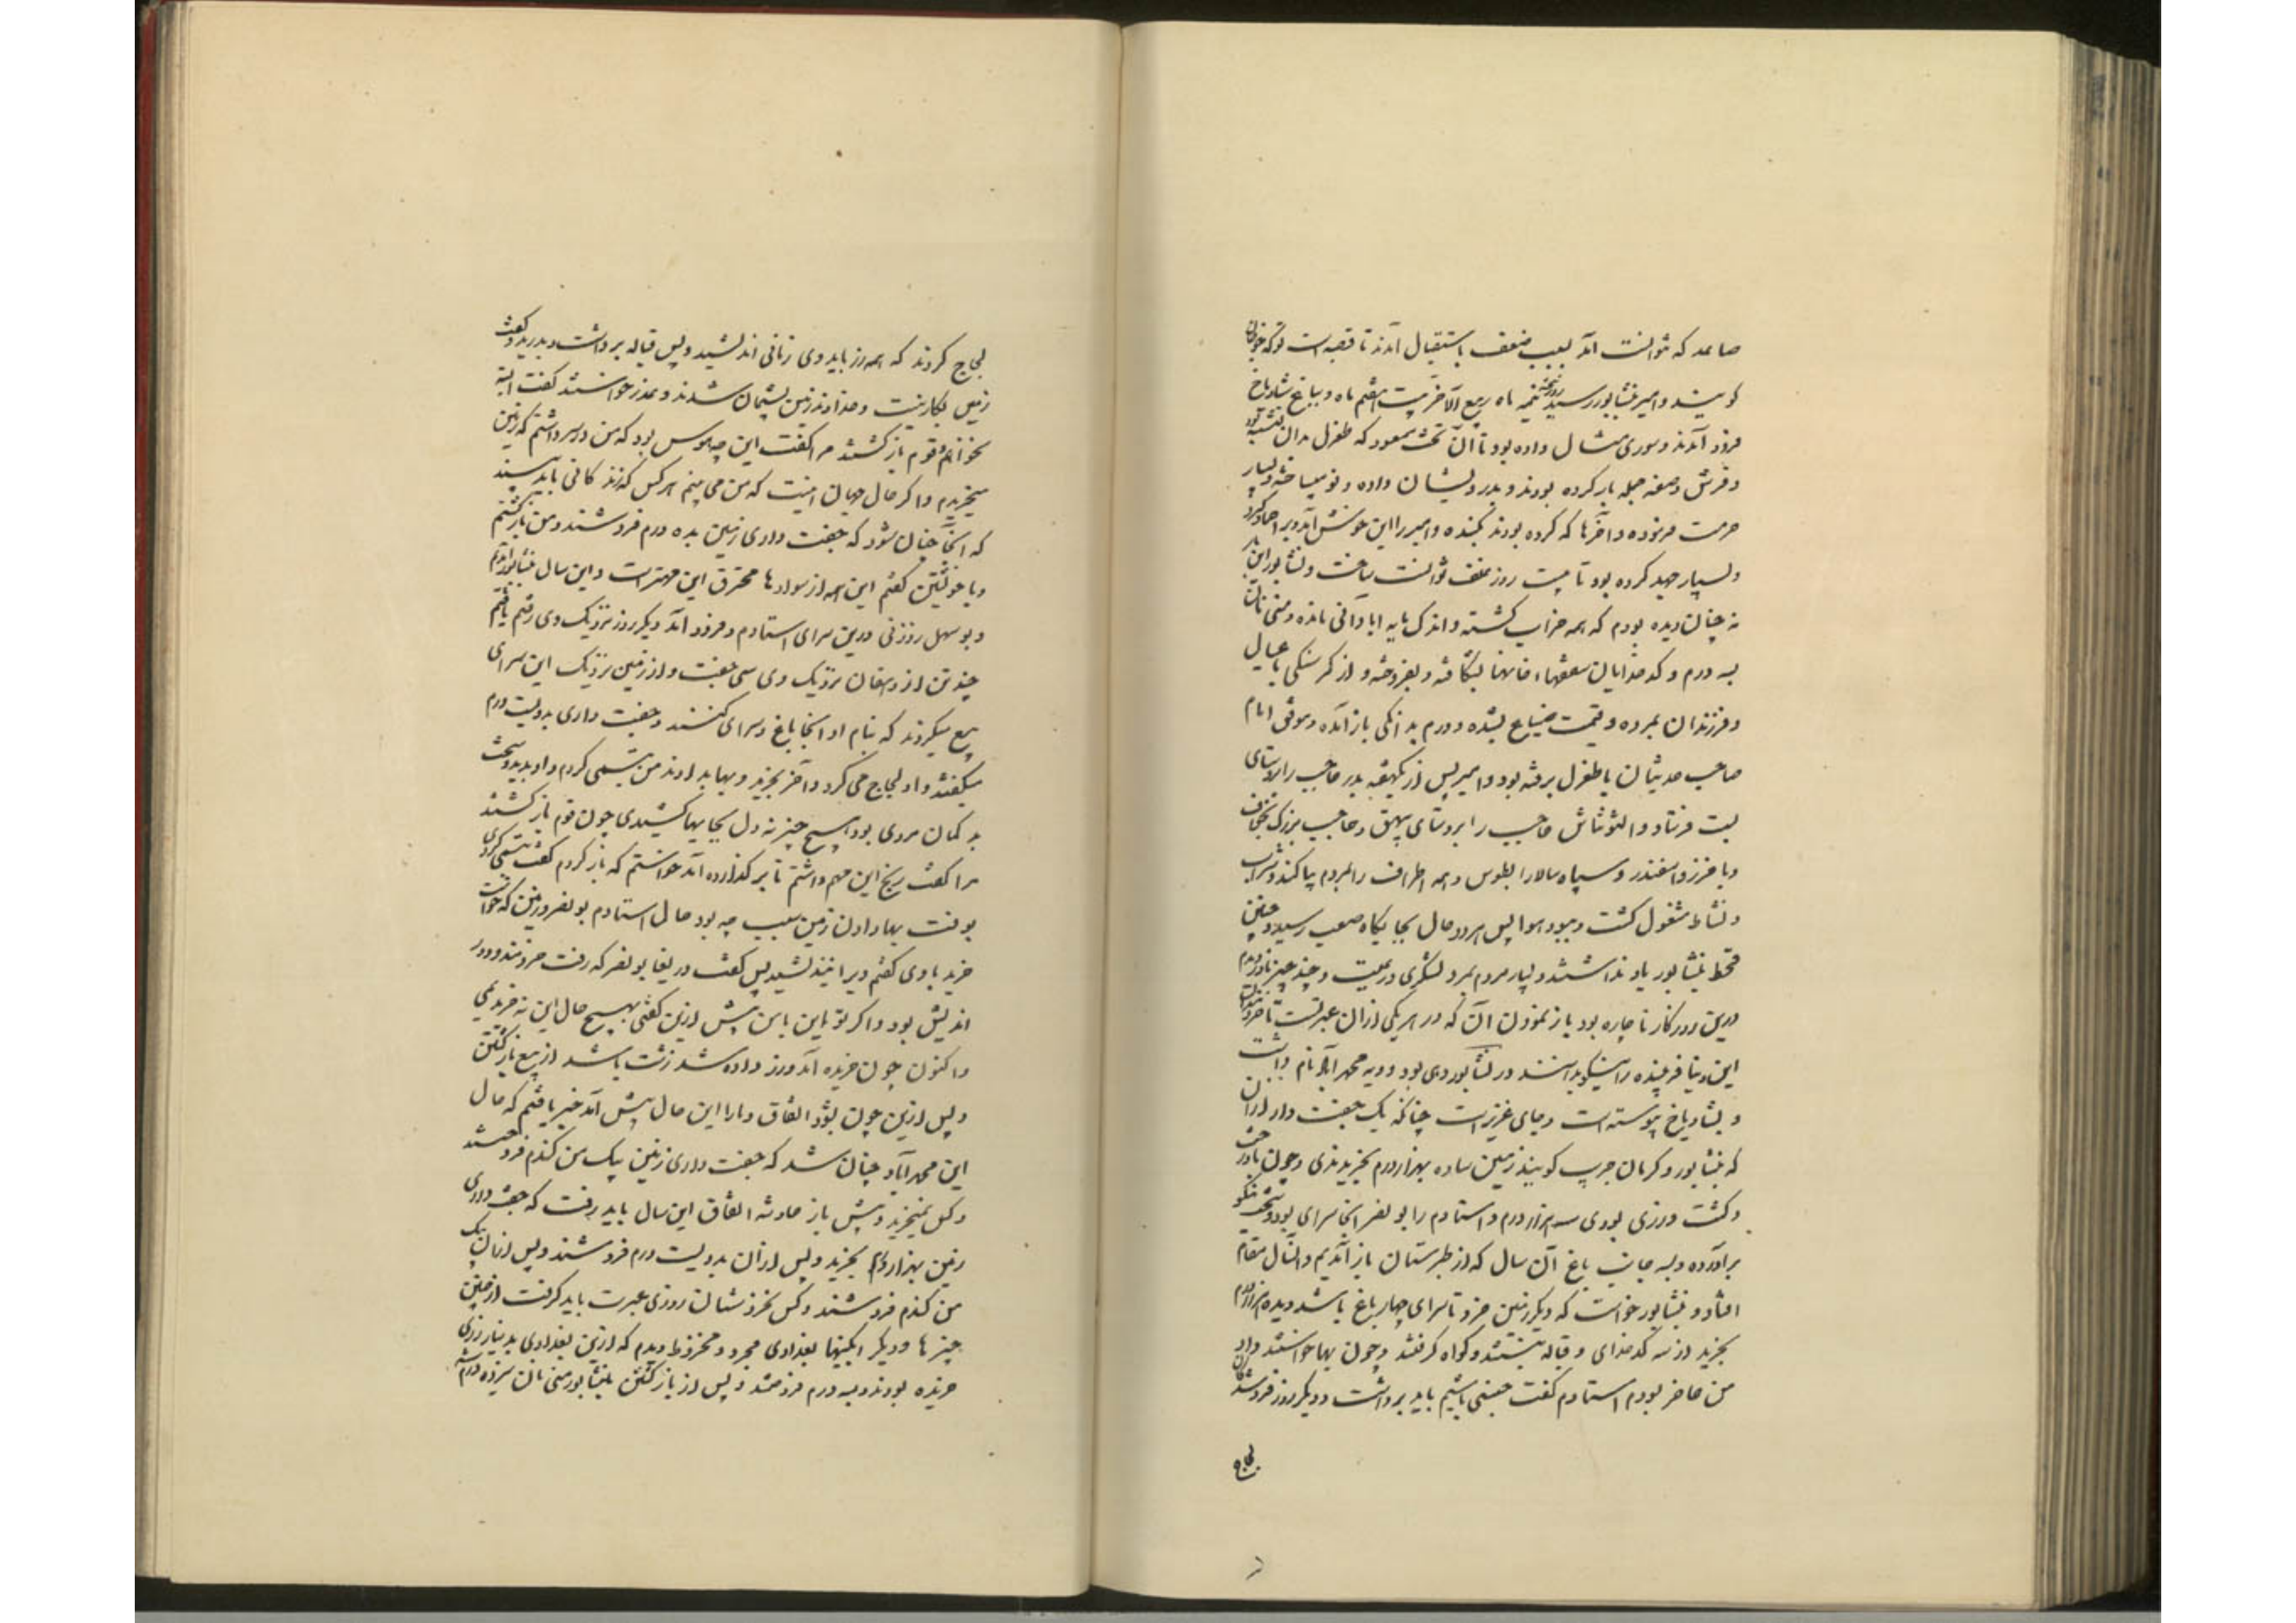 صاعد که نتوانست آمد بسبب ضعف باستقبال آمدند تا قصبه است که خوجان
گویند و امیر نشابور رسید روز پنجشنبه ماه ربیع الآخر بیست هفتم ماه و بباغ شادیاخ
فرود آمدند و سوری مثال داده بود تا آن تخت مسعود که طغرل بدان نشسته بود
و فرش و صفه جمله پاره کرده بودند و بدرویشان داده و نو میساخته و بسیار
مرمت فرموده و آخرها که کرده بودند بکنده و امیر را این خوش آمد و برا احماد کرد
و بسیار جهد کرده بود تا بیست روزه علف توانست ساخت و نشابور این بار
نه چنان دیده بودم که همه خراب گشته و اندک مایه ابادانی مانده و منی نان
بسه درم و کدخدایان سقفها خانها بشکافته و بفروخته و از گرسنگی با عیال
و فرزندان بمرده و قیمت ضیاع بشده و درم بدانگی باز آمده و موفق امام
صاحب حدیثان با طغرل برفته بود و امیر پس از یکهفته بدر حاجب را براستای
بست فرستاد و التونتاش حاجب را بروستای بیهق و حاجب بزرگ بخواف
و باخرز و اسفند و سپاه سالار را بطوس و همه اطراف را بمردم بیاکند و بشراب
و نشاط مشغول گشت و ببود هوا بس سرد و حال بجایگاه صعب رسید و چنین
قحط بنشابور یاد نداشتند و بسیار مردم بمرد لشکری و رعیت و چند چیز نادر دیدم
درین روزگار ناچاره بود باز نمودن آن که در هر یکی از آن عبرتست تا خردمندان
این دنیا فریبنده را نیکو بدانند در نشابور دهی بود و دیه محمدآباد نام داشت
و بشادیاخ پیوسته است و جای عزیز است چنانکه یک جفت وار از آن
که بنشابور و کرمان جریب گویند زمین ساده بهزار درم بخریدندی و چون با درخت
و کشت ورزی بودی سه هزار درم و استادم را بو نصر آنجا سرای بود و سخت نیکو
برآورده و بسه جانب باغ آن سال که از طبرستان باز آمدیم و آنسال مقام
افتاد و نشابور خواست که دیگر زمین خرد تا سرای چهار باغ باشد و بده هزار درم
بخرید از سه کدخدای و قباله نبشتند و گواه گرفتند و چون بها خواستند داد
من حاضر بودم استادم گفت جنسی باسیم باید برداشت و دیگر روز فروشندگان
لجاج
لجاج کردند که همه زر باید وی زمانی اندیشید و پس قباله برداشت و بدرید و گفت
زمین بکار نیست و خداوند زمین پشیمان شدند و عذر خواستند گفت البته
نخواهم و قوم بازگشتند مرا گفت این چه هوس بود که من در سر داشتم که زمین
میخریدم و اگر حال جهان اینست که من می بینم هر کس که زند کانی یابد ببیند
که آنجا چنان شود که جفت واری زمین بده درم فروشند و من بازگشتم
و با خویشتن گفتم این همه از سوداها محترق این مهتر است و این سال بنشابور آمدیم
و بوسهل زوزنی درین سرای استادم فرود آمد دیگر روز نزدیک وی رفتم یافتم
چند تن از دهقان نزدیک وی سی جفت وار از زمین نزدیک این سرای
بیع میکردند که بنام او آنجا باغ و سرای کنند و جفت واری بدویست درم
میگفتند و او لجاج می کرد و آخر بخرید و بها بدادند من تبسمی کردم و او بدید و سخت
بد گمان مردی بود هیچ چیز نه دل بجایها کشیدی چون قوم بازگشتند
مرا گفت رنج این مهم داشتم تا بر گذارده آمد خواستم که باز گردم گفت تبسمی کردی
بوقت بها دادن زمین سبب چه بود حال استادم بونصر و زمین که خواست
خرید با وی گفتم دیر اندیشید پس گفت دریغا بونصر که رفت خردمند و دور
اندیش بود و اگر تو این با من پیش ازین گفتی بهیچ حال این نه خریدمی
و اکنون چون خریده آمد و زر داده شد زشت باشد از بیع بازگشتن
و پس ازین چون بدوالقاق و ما را این حال پیش آمد خبر یافتم که حال
این محمدآباد چنان شد که جفت واری زمین بیک من گندم فروختند
و کس نمیخرید و پیش باز حادثه اتفاق این سال باید رفت که جفت واری
زمین بهزار درم بخرید و پس از آن بدویست درم فروشند و پس از آن بیک
من گندم فروشند و کس نخرد ستان روزی عبرت باید گرفت از چنین
چیزها و دیگر آبگینها بغدادی مجرد و مخروط دیدم که ازین بغدادی بدینار زری
خریده بودند و بسه درم فروختند و پس از بازگشتن ما بنشابور منی نان سیزده درم شد